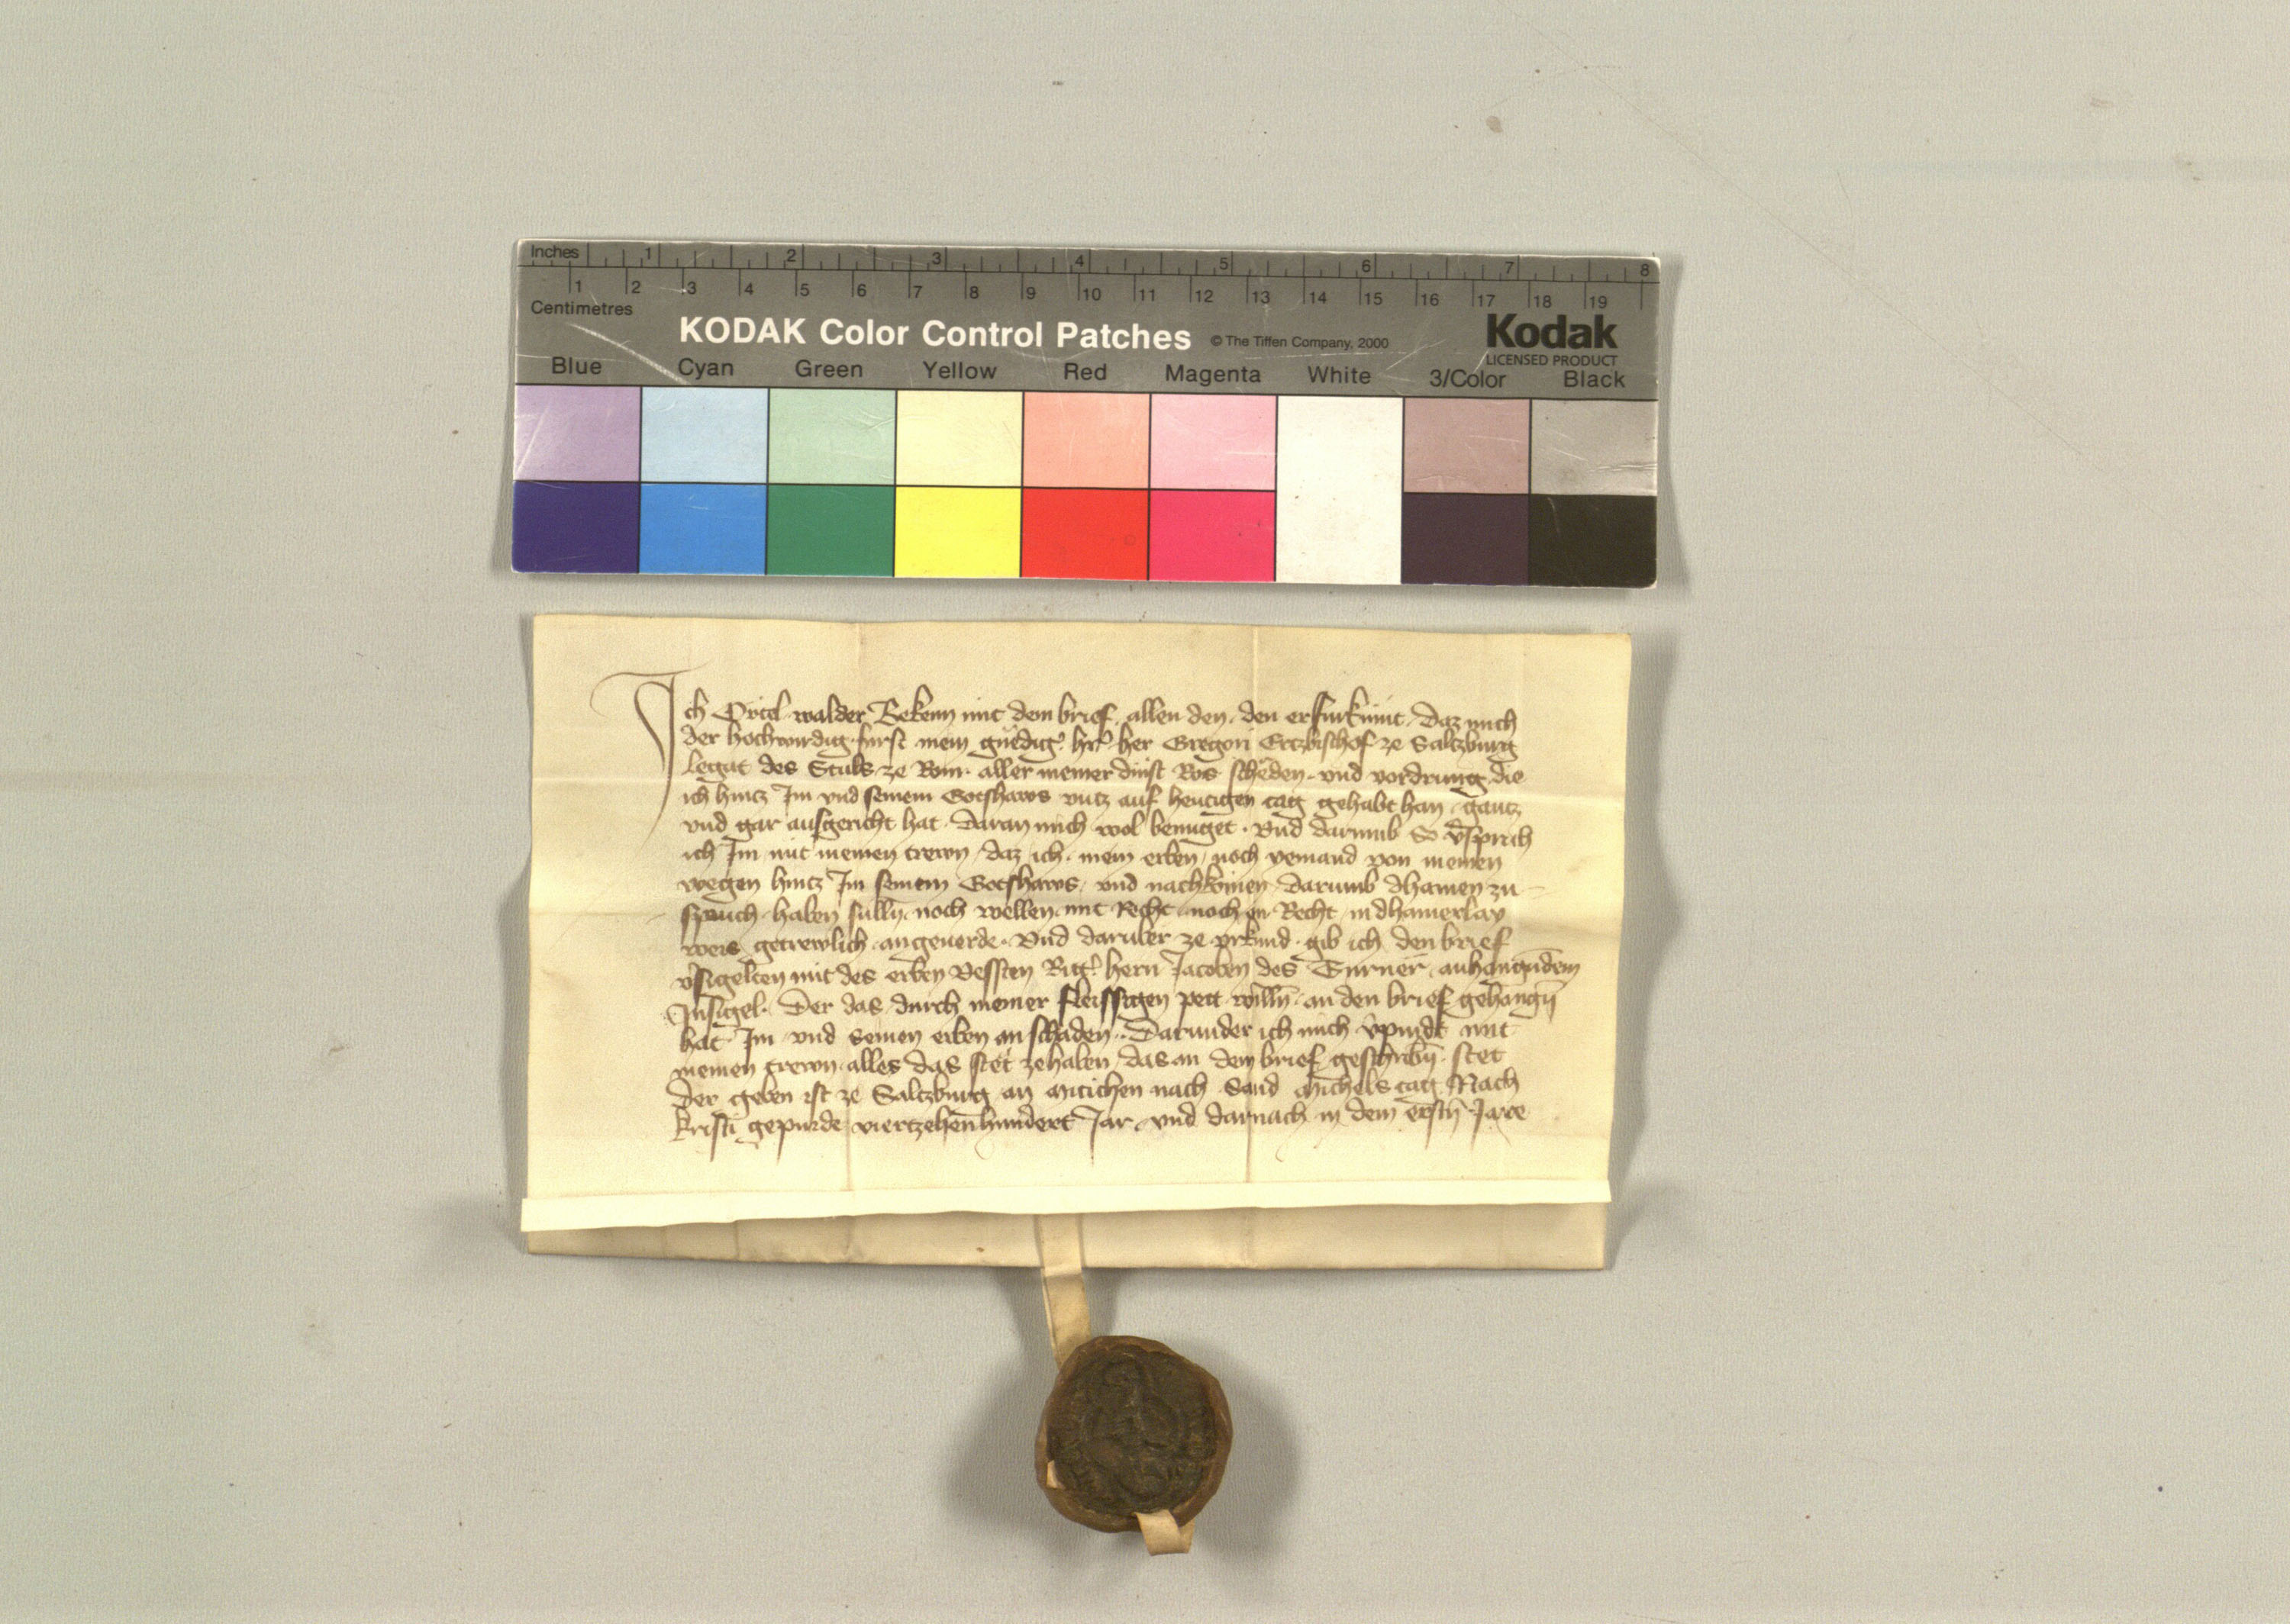 Inches 1 2 3 4 5 6 7 8
1 2 3 4 5 6 7 8 9 10 11 12 13 14 15 16 17 18 19
Centimetres
KODAK Color Control Patches © The Tiffen Company, 2000 Kodak
LICENSED PRODUCT
Blue Cyan Green Yellow Red Magenta White 3/Color Black
Ich Ortel walder Bekenn mit dem brief allen den den er furkumt Daz mich
der hochwirdig furst mein gnedig' hr' her Gregori Ertzbischof ze Saltzburg
Legat des Stuls ze Rom aller meiner dinst Ros scheden vnd vordrung die
ich hintz Im vnd seinem Gotshaws vntz auf hewtigen tag gehabt han gantz
vnd gar ausgericht hat daran mich wol benuget Vnd darumb So v'sprich
ich Im mit meinen trewn daz ich mein erben noch yemand von meinen
wegen hintz Im seinem Gotshaws vnd nachkomen darumb dhainen zu
spruch haben sulln noch wellen mit Recht noch on Recht in dhainerlay
weis getrewlich angeuerde Vnd daruber ze vrkund gib ich den brief
v'sigelten mit des erbern Vessten Ritt' hern Jacoben des Turner anhangundem
Insigel Der das durch meiner fleissigen pett willn an den brief gehangn
hat Im vnd seinen erben an schaden Darunder ich mich v'pindt mit
meinen trewn alles das stet zehaben das an dem brief geschribn stet
Der geben ist ze Saltzburg an Mitichen nach Sand Michels tag Nach
kristi gepurde viertzehenhundert Jar vnd darnach in dem erstn Jare